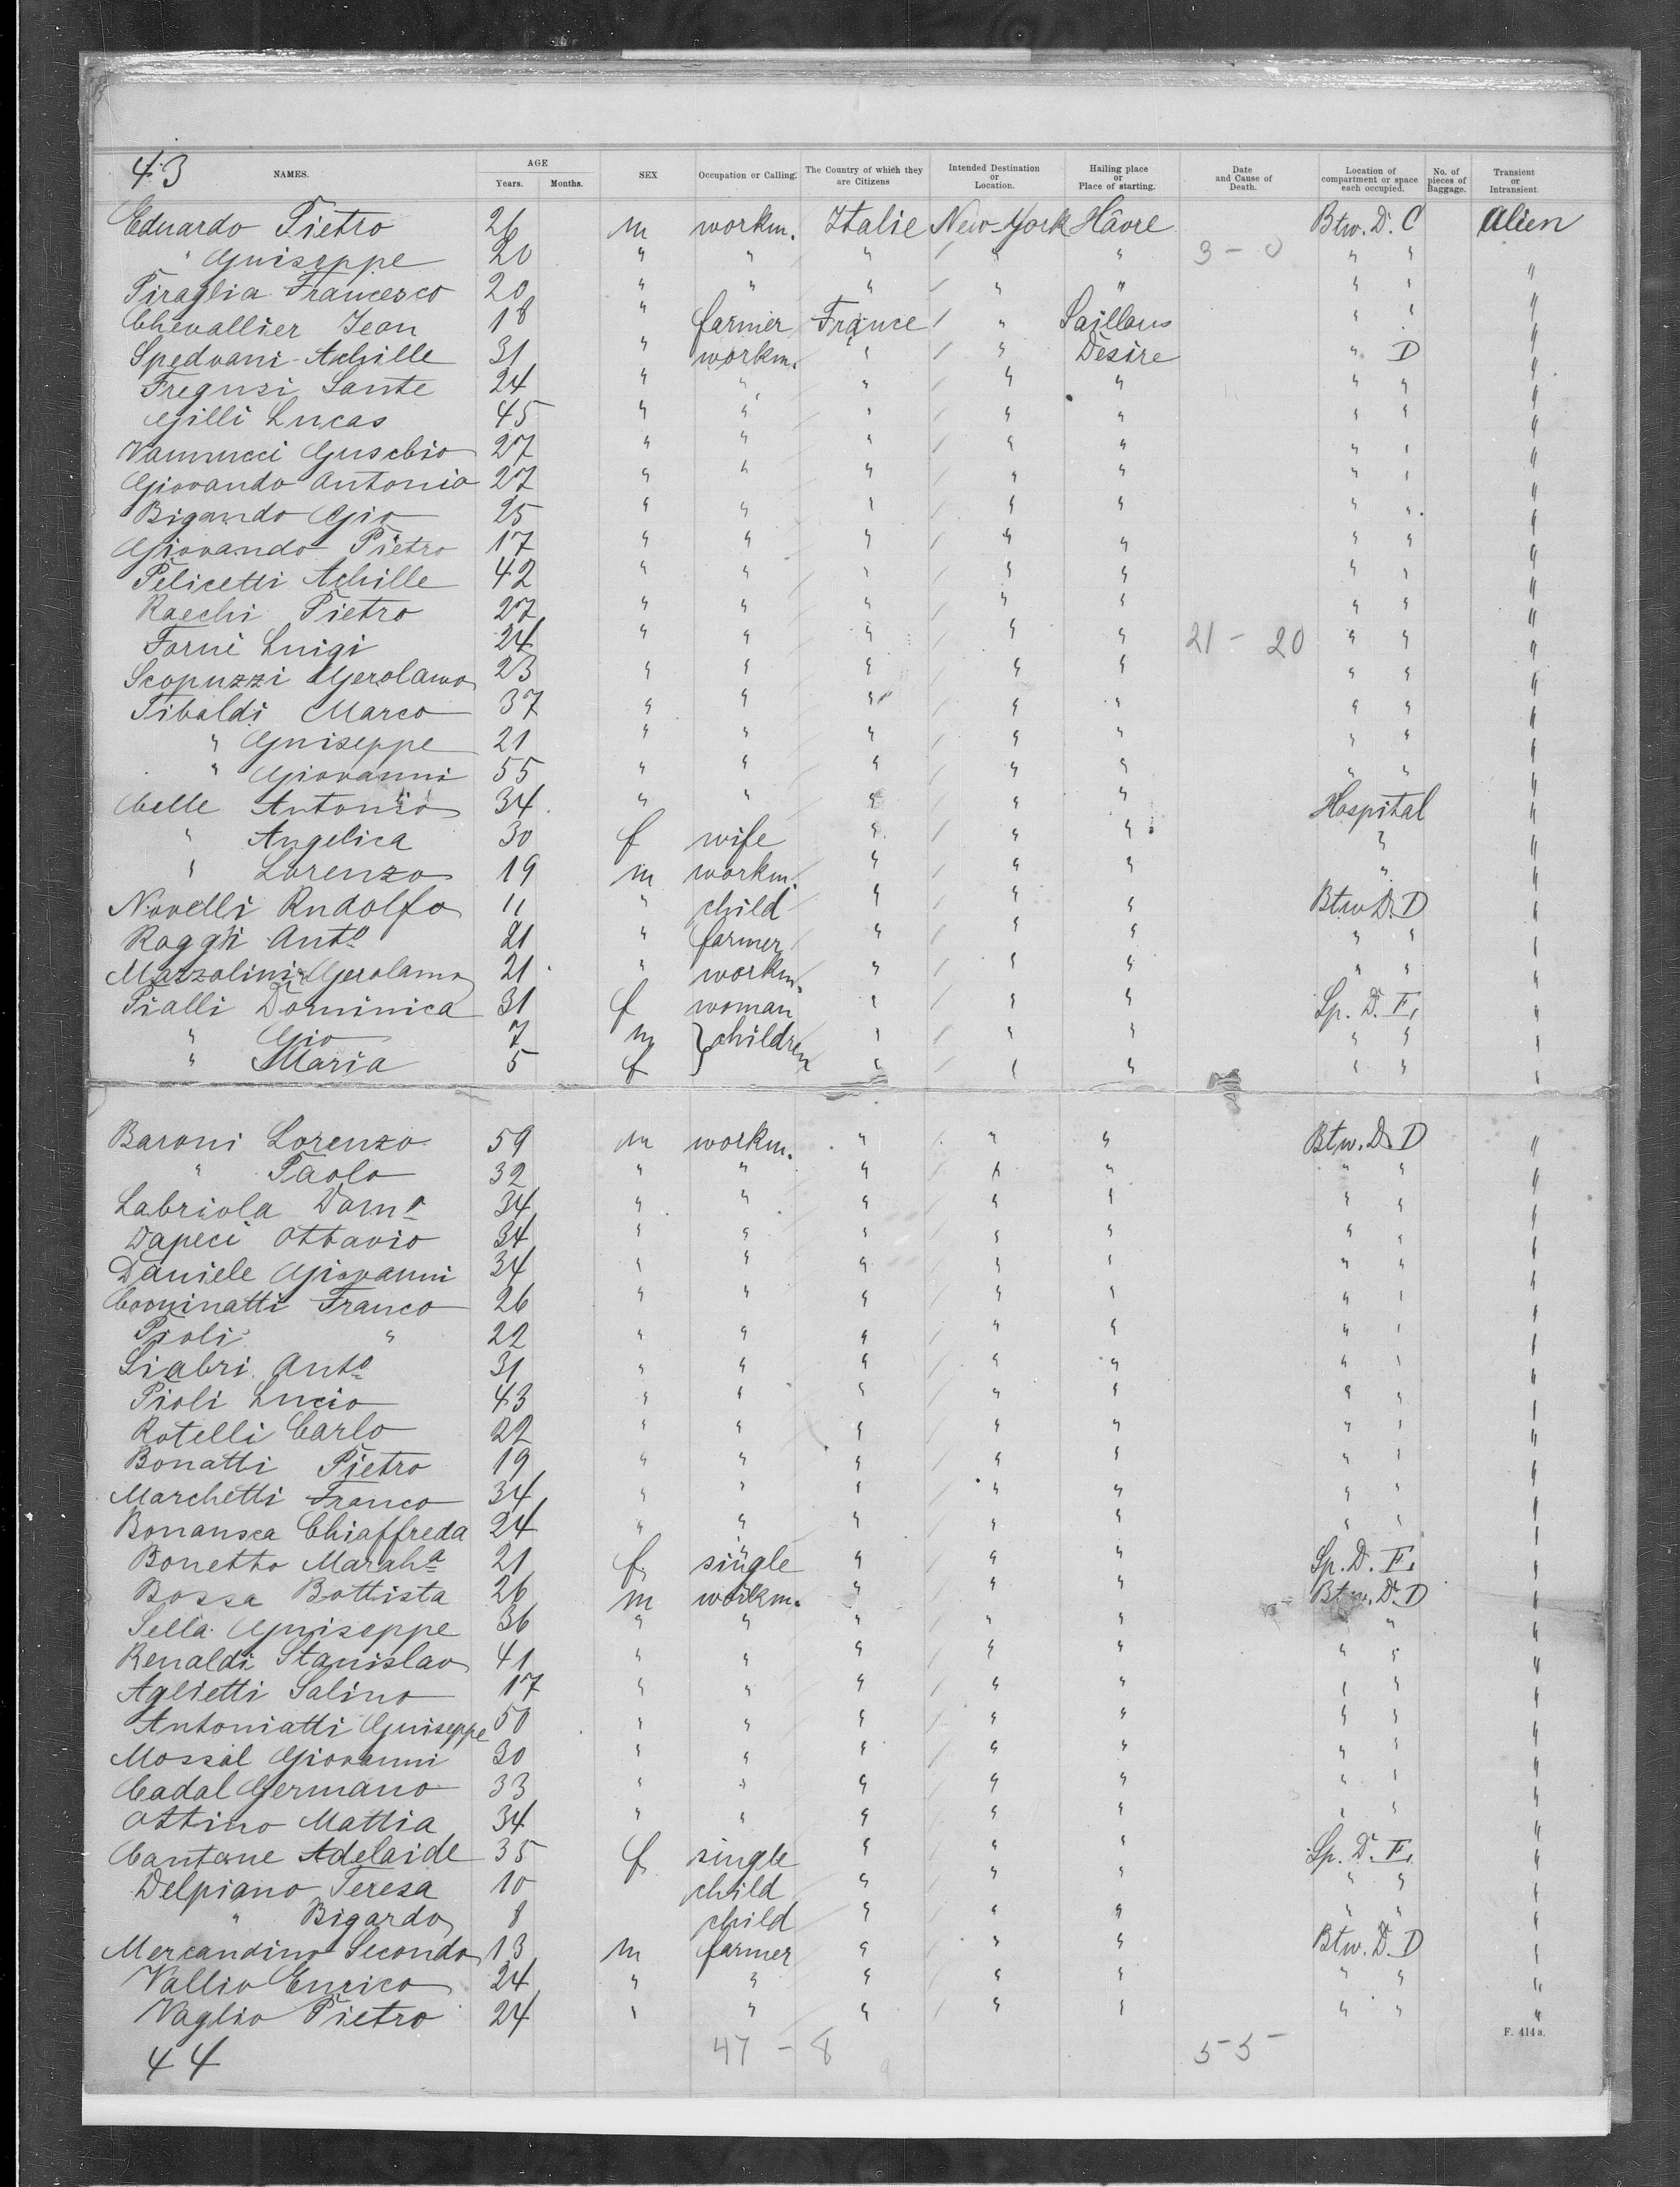 43 NAMES. AGE Years. Months. SEX Occupation or Calling. The Country of which they are Citizens Intended Destination or Location. Hailing place or Place of starting. Date and Cause of Death. Location of compartment or space each occupied. No. of pieces of Baggage. Transient or Intransient.
Eduardo Pietro 26 m workm. Italie New-York Hâvre Btw. D. C Alien
" Guiseppe 20 " " " / " " 3 - 0 " " "
Piraglia Francesco 20 " " " / " " " " "
Chevallier Jean 18 " farmer France / " Saillans " " "
Spedvani Achille 31 " workm. " / " Desire " D "
Fregusi Sante 24 " " " / " " " " "
Gilli Lucas 45 " " " / " " " " "
Vannucci Gusebio 27 " " " / " " " " "
Giovando Antonio 27 " " " / " " " " "
Bigando Gio 25 " " " / " " " " "
Giovando Pietro 17 " " " / " " " " "
Pelicetti Achille 42 " " " / " " " " "
Raechi Pietro 27 " " " / " " " " "
Forni Luigi 24 " " " / " " 21 - 20 " " "
Scopuzzi Gerolamo 23 " " " / " " " " "
Tibaldi Marco 37 " " " / " " " " "
" Guiseppe 21 " " " / " " " " "
" Giovanni 55 " " " / " " " " "
Celle Antonio 34 " " " / " " Hospital "
" Angelica 30 f wife " / " " " "
" Lorenzo 19 m workm. " / " " " "
Novelli Rudolfo 11 " child " / " " Btw D. D "
Raggi Anto 21 " farmer " / " " " " "
Mazzolini Gerolamo 21 " workm. " / " " " " "
Pialli Dominica 31 f woman " / " " Sp. D. F. "
" Gio 7 m } children " / " " " " "
" Maria 5 f " / " " " " "
Baroni Lorenzo 59 m workm. " / " " Btw. D. D "
" Paolo 32 " " " / " " " " "
Labriola Domo 34 " " " / " " " " "
Dapeci Ottavio 34 " " " / " " " " "
Daniele Giovanni 34 " " " / " " " " "
Cominatti Franco 26 " " " / " " " " "
Pioli " 22 " " " / " " " " "
Siabri Anto 31 " " " / " " " " "
Pioli Lucio 43 " " " / " " " " "
Rotelli Carlo 22 " " " / " " " " "
Bonatti Pietro 19 " " " / " " " " "
Marchetti Franco 34 " " " / " " " " "
Bonansea Chiaffreda 24 " " " / " " " " "
Bonetto Maraha 21 f single " / " " Sp. D. F. "
Bossa Bottista 26 m workm. " / " " Btw. D. D "
Sella Guiseppe 36 " " " / " " " "
Renaldi Stanislao 41 " " " / " " " " "
Aglietti Salino 17 " " " / " " " " "
Antoniatti Guiseppe 50 " " " / " " " " "
Mossal Giovanni 30 " " " / " " " " "
Cadal Germano 33 " " " / " " " " "
Ottino Mattia 34 " " " / " " " " "
Cantone Adelaide 35 f single " / " " Sp. D. F. "
Delpiano Teresa 10 child " / " " " " "
" Bigardo 8 child " / " " " " "
Mercandino Secondo 13 m farmer " / " " Btw. D. D "
Vallio Enrico 24 " " " / " " " " "
Vaglio Pietro 24 " " " / " " " " "
F. 414 a.
44 47 - 8 55